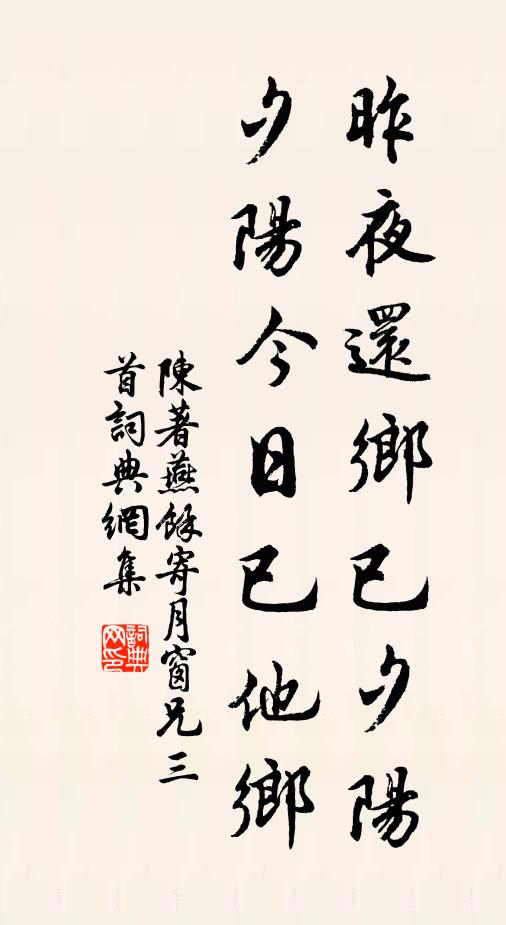 昨夜還鄉已夕陽
夕陽今日已他鄉
陳著燕餘寄月窗兄三
首詞典網集
詞典
網印